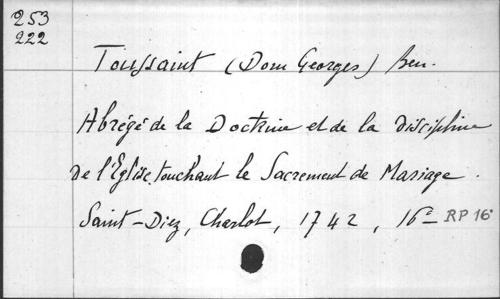 253
222
Toussaint (Dom Georges) Ben.
Abrégé de la Doctrine et de la discipline
de l'Eglise touchant le Sacrement de Mariage.
Saint-Diez, Charlot, 1742, 16º RP 16